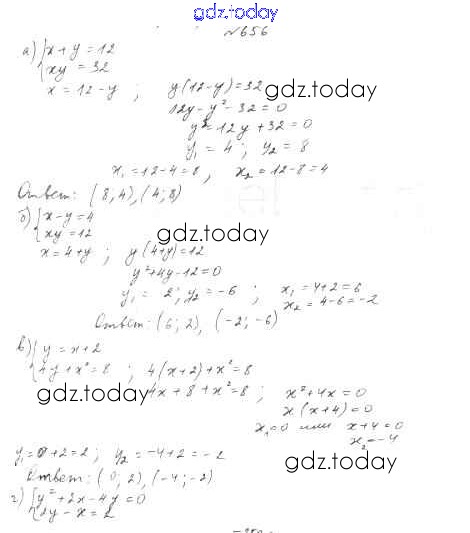 gdz.today
№656
а) { x + y = 12
xy = 32
x = 12 - y ; y(12 - y) = 32
gdz.today
12y - y² - 32 = 0
y² = 12y + 32 = 0
y₁ = 4 ; y₂ = 8
x₁ = 12 - 4 = 8 , x₂ = 12 - 8 = 4
Ответ: (8; 4), (4; 8)
б) { x - y = 4
xy = 12
gdz.today
x = 4 + y ; y(4 + y) = 12
y² + 4y - 12 = 0
y₁ = 2; y₂ = -6 ; x₁ = 4 + 2 = 6
x₂ = 4 - 6 = -2
Ответ: (6; 2), (-2; -6)
в) { y = x + 2
4y + x² = 8 ; 4(x + 2) + x² = 8
gdz.today
4x + 8 + x² = 8 ; x² + 4x = 0
x(x + 4) = 0
x₁ = 0 или x + 4 = 0
x₂ = -4
y₁ = 0 + 2 = 2 ; y₂ = -4 + 2 = -2
gdz.today
Ответ: (0; 2), (-4; -2)
г) { y² + 2x - 4y = 0
y - x = 2